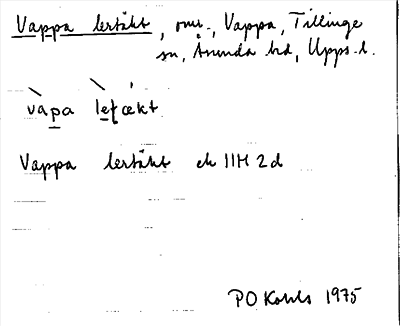 Vappa lertäkt, omr., Vappa, Tillinge
sn, Åsunda hd, Upps. l.
vapa
Vappa lertäkt ek 11H 2d
PO Kohls 1975